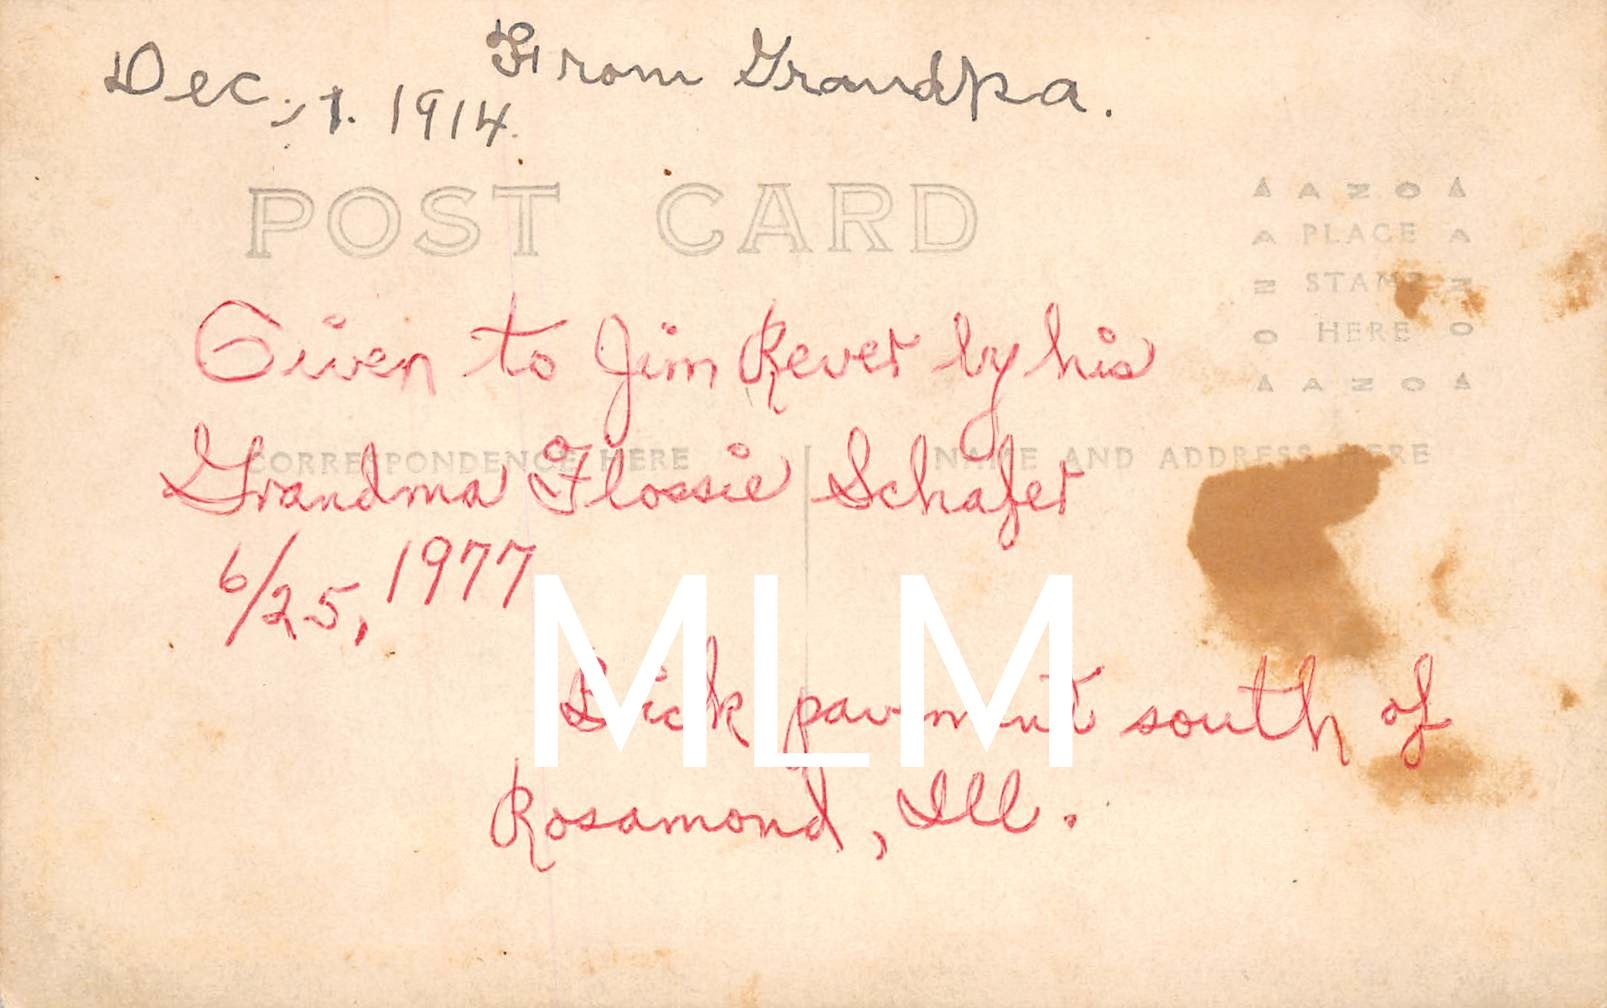 From Grandpa.
Dec. 1. 1914.
POST CARD
AZOA
PLACE
STAMP
HERE
AZOA
Given to Jim Rever by his
CORRESPONDENCE HERE
NAME AND ADDRESS HERE
Grandma Flossie Schafer
6/25, 1977
MLM
pavment south of
Rosamond, Ill.